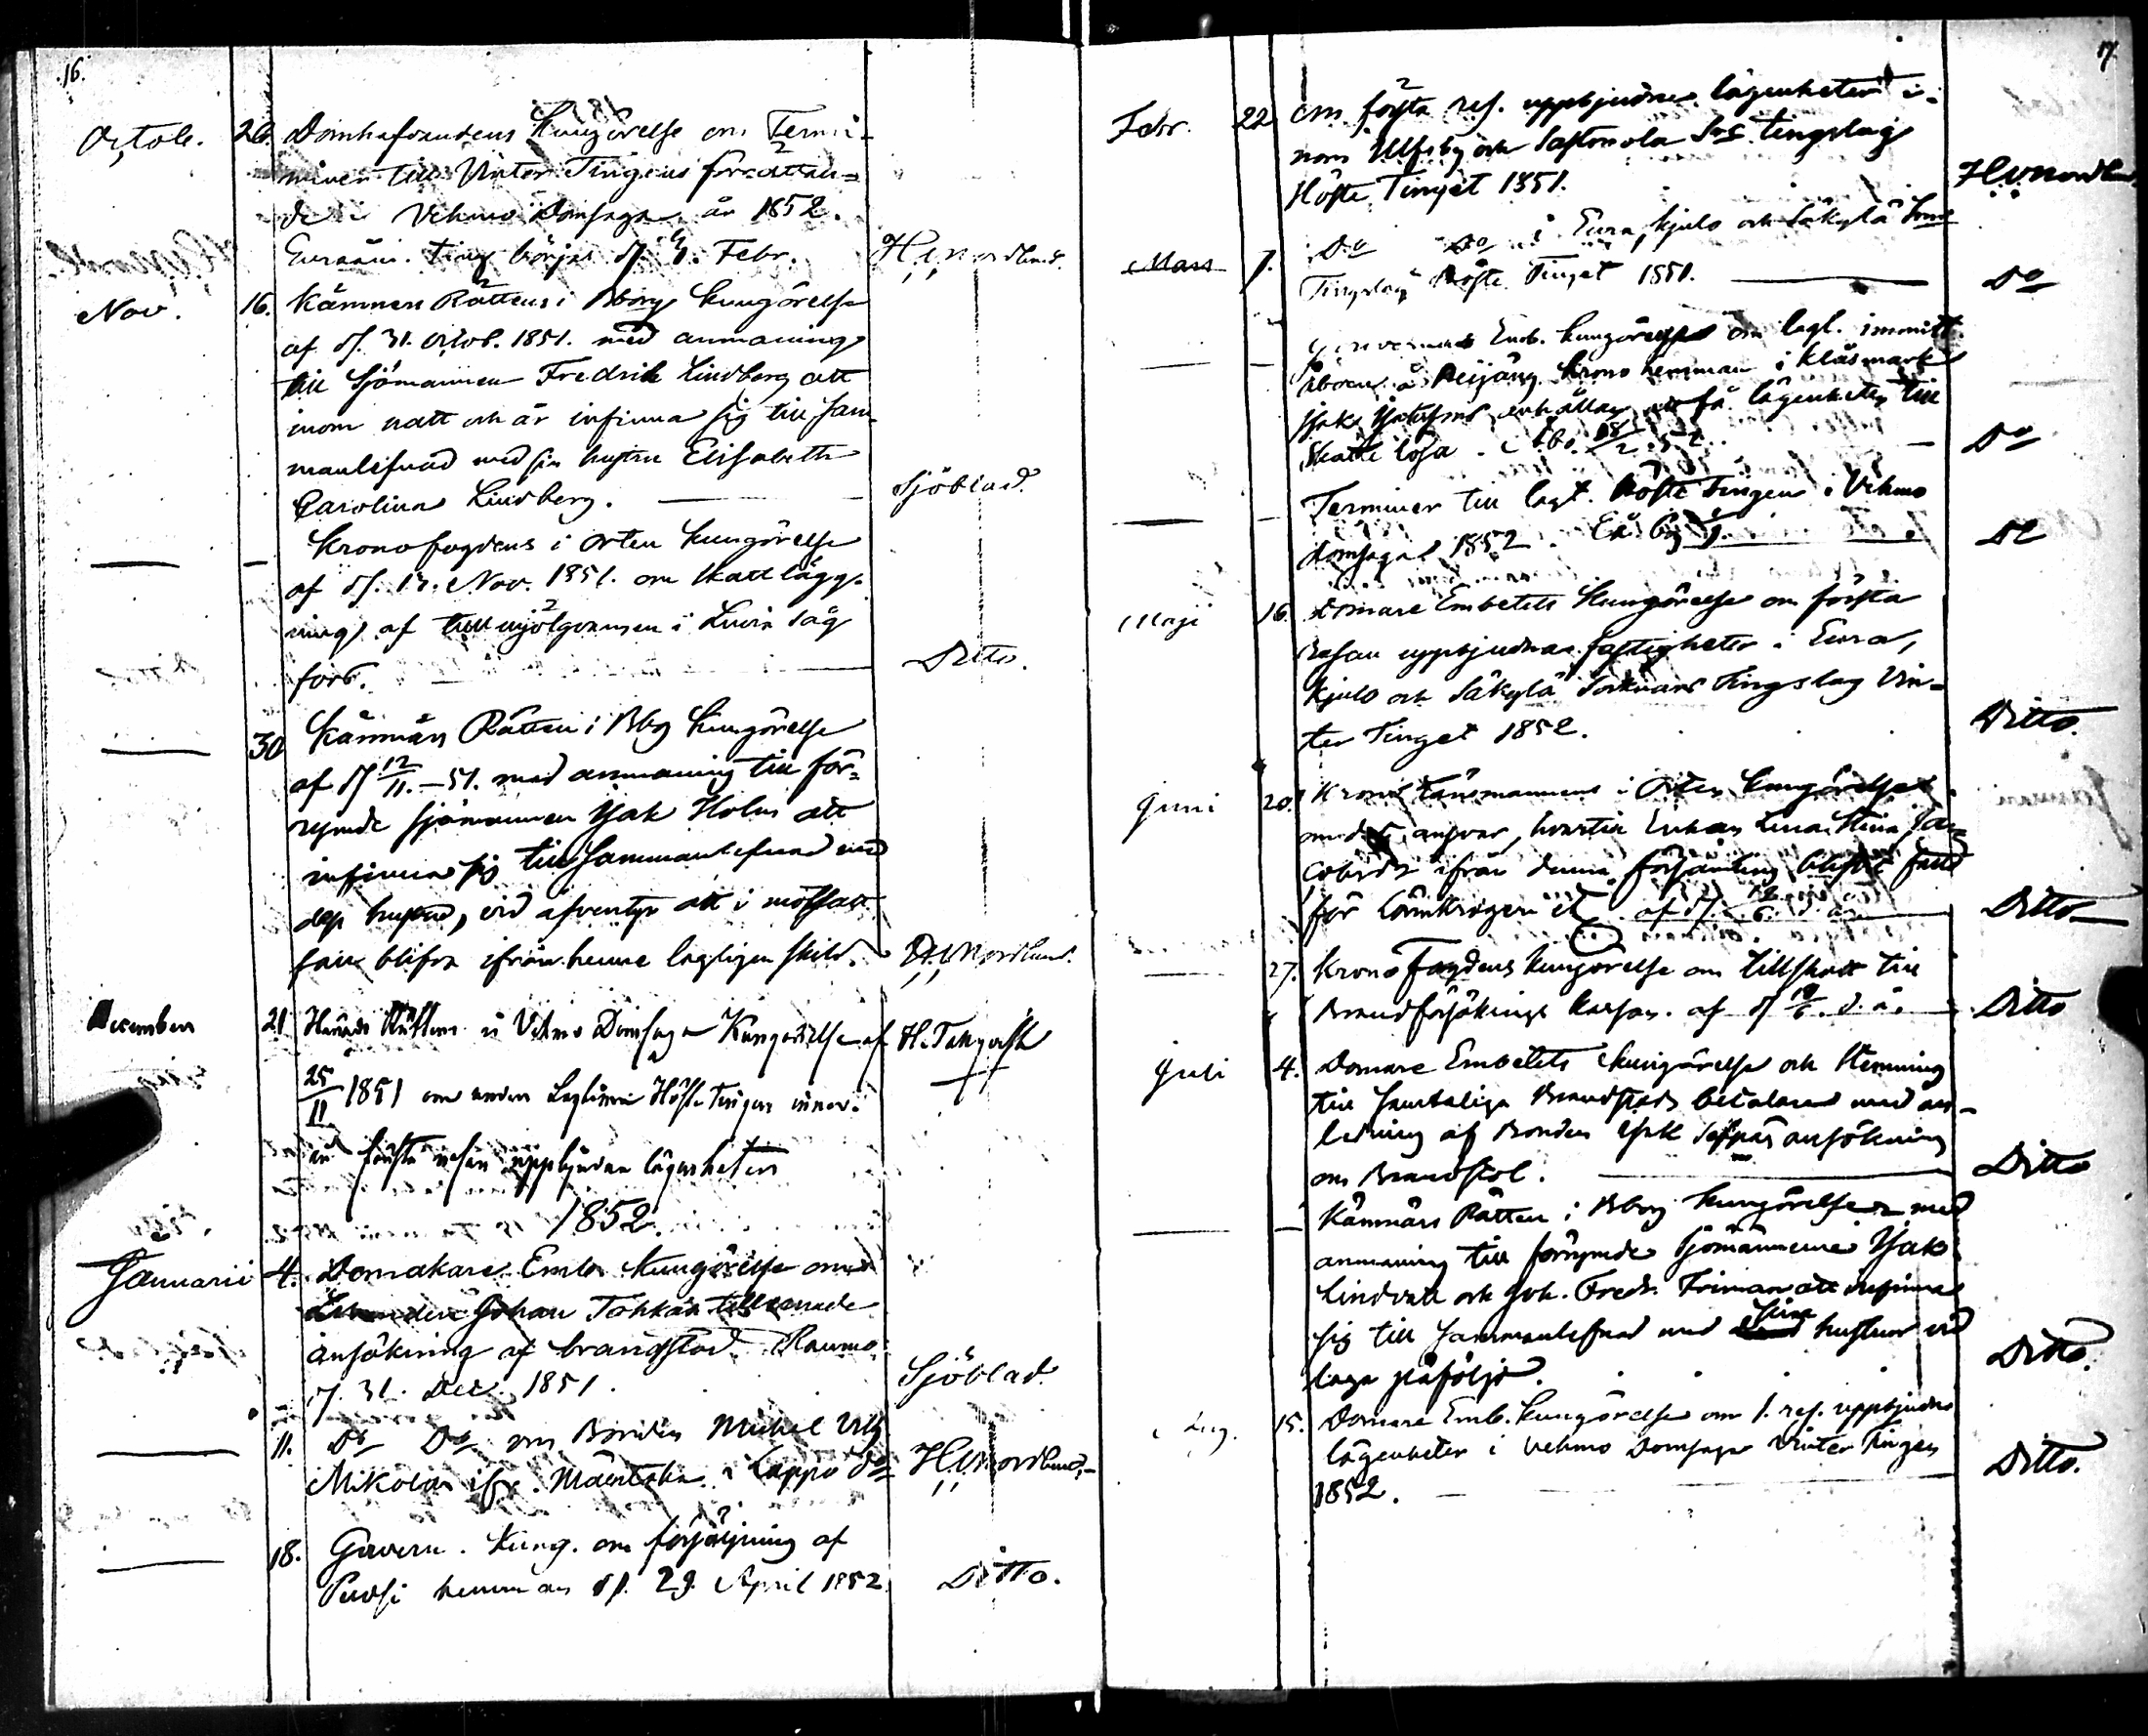 16.
Octob. 26. Domhafvandens Kungörelse om Termi-
niner till Vinter Tingens förrättan-
de i Vehmo Domsaga år 1852.
Euraåm. ting börjas d. 9. Febr. H. Nordlund.
Nov. 16. Kämners Rättens i Bborg Kungörelse
af d. 31. Octob. 1851. med anmaning
till Sjömannen Fredrik Lindberg att
inom natt och år infinna sig till sam-
manlefnad med sin hustru Elisabeth
Carolina Lindberg. Sjöblad.
Kronofogdens i orten Kungörelse
af d. 13. Nov. 1851. om skattlägg-
ning af tullmjölqvarnen i Luvia såg
förs. Ditto.
30 Kämnärs Rätten i Bbg Kungörelse
af d. 12/11.-51. med anmaning till för-
rymde sjömannen Isak Holm att
infinna sig till Sammanlefnad med
dess hustru, vid äfventyr att i motsatt
fall blifva ifrån henne lagligen skild. H. Nordlund.
December 21. Härads Rättens i Vehmo Domsaga Kungörelse af H. Tallqvist
25/11 1851 om under Laglima Höste tingen innev.
år första resan uppbjudna lägenheter
1852.
Januarii 4. Domakare Emb. Kungörelse om
Johan Tohkas timade
ansökning af brandstod. Raumo
d. 31. Dec. 1851. Sjöblad.
11. Do Do om Bonden Mickel
Mikola ifr. Mäentaka i Lappo H. Nordlund.
18. Guvern. Kung. om försäljning af
hemman d. 29. April 1852 Ditto.
17.
Febr. 22 om första res. uppbjudna lägenheter i-
nom Ulfsby och Sastmola Sns tingslag
Höste Tinget 1851. H. Nordlund.
Mars 7. Do Do i Eura, Kjulo och Säkylä Sns
Tingslag Höste Tinget 1851. Do
Guvernörs Emb. Kungörelse om lagl. immitt.
åboen å krono hemman i Kläsmark
Isak erhålla att få lägenheten till
Skatte lösa. Do
Terminer till lagt. Höste Tingen i Vehmo
domsaga 1852. Do
Maji 16. Domare Embetets Kungörelse om första
Resan uppbjudna fastigheter i Eura,
Kjulo och Säkylä Socknars Tingslag Vin-
ter Tinget 1852. Ditto.
Juni 20. Krono länsmannens i Orten Kungörelse
om ansvar, hvartill Enkan Lena Stina Ja-
cobsdr ifrån denna församling blifvit fälld
för Lönnkrögeri Ditto
27. Krono Fogdens kungörelse om tillskott till
Brandförsäkrings kassan. af d. 19/6. d. å. Ditto
Juli 4. Domare Embetets Kungörelse och Stemning
till samtelige Brandstods betalare med an-
ledning af Bonden Isak Seppäs ansökning
om Brandstod. Ditto
Kämnärs Rätten i Bborg Kungörelse med
anmaning till förrymde sjömännerne Isak
Lindvall och Joh. Fredr. Friman att infinna
sig till Sammanlefnad med sina hustrur vid
laga påföljd. Ditto.
Aug. 15. Domare Emb. Kungörelse om 1. res. uppbjudna
lägenheter i Vehmo Domsaga Vinter Tingen
1852. Ditto.